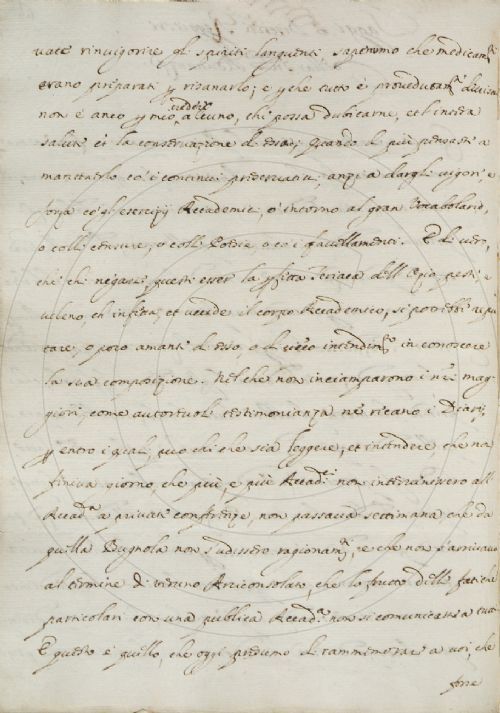 vate rinvigorire gl spiriti languenti sapremo che medicam.ti
erano preparati p risanarlo; e p che tutto è proveduto
non è anco p mio veder alcuno, chi possa dubitarne, et l' intera
salute et la conservazione di esso; Quando di più pensasti a
mantenerlo co' i continui preservativi, anzi a dargli vigore, e
forza co' gl esercizij Accademici, o' intorno al gran Vocabolario,
o colle censure, o colle Poesie o co i favellamenti. E di vero,
che chi negasse questi esser la p fetta Teriaca dell' Ozio peste, e
veleno ch' infetta, et uccide il corpo Accademico, si potrebbe repu
tare, o poco amante di esso, o di intendim.to in conoscere
la sua composizione. Nel che non inciamparono i n.ri mag
giori, come autorevole testimonianza ne recano i Diarj,
p entro i quali, può chi che sia leggere, et intendere che na
giorno che più, e più Accad.ci non intervenissero all'
Accad.a a private conferenze, non passava settimana che da
quella Bugnola non s' udissero ragionam.ti, e che non s' arrivava
al termine di veruno Arciconsolato, che lo frutto delle fatiche
particolari con una publica Accad.a non si comunicasse a tutti
E questo è quello, che oggi prendemo di rammemorare a voi, che
forse